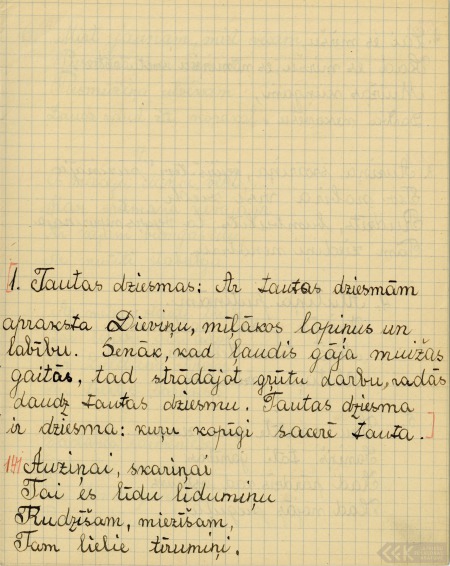 1. Tautas dziesmas: Ar tautas dziesmām
apraksta Dieviņu, mīļākos lopiņus un
labību. Senāk, kad ļaudis gāja muižas
gaitās, tad strādājot grūtu darbu, radās
daudz tautas dziesmu. Tautas dziesma
ir dziesma: kuŗu kopīgi sacerē tauta.
Auziņai, skariņai
Tai es līdu līdumiņu
Rudzīšam, miezīšam,
Tam lielie tīrumiņi.